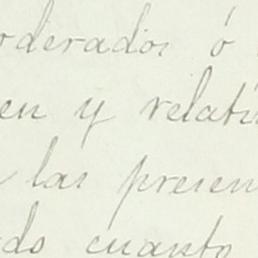 oderados ó
en y relati
las presen
do cuanto